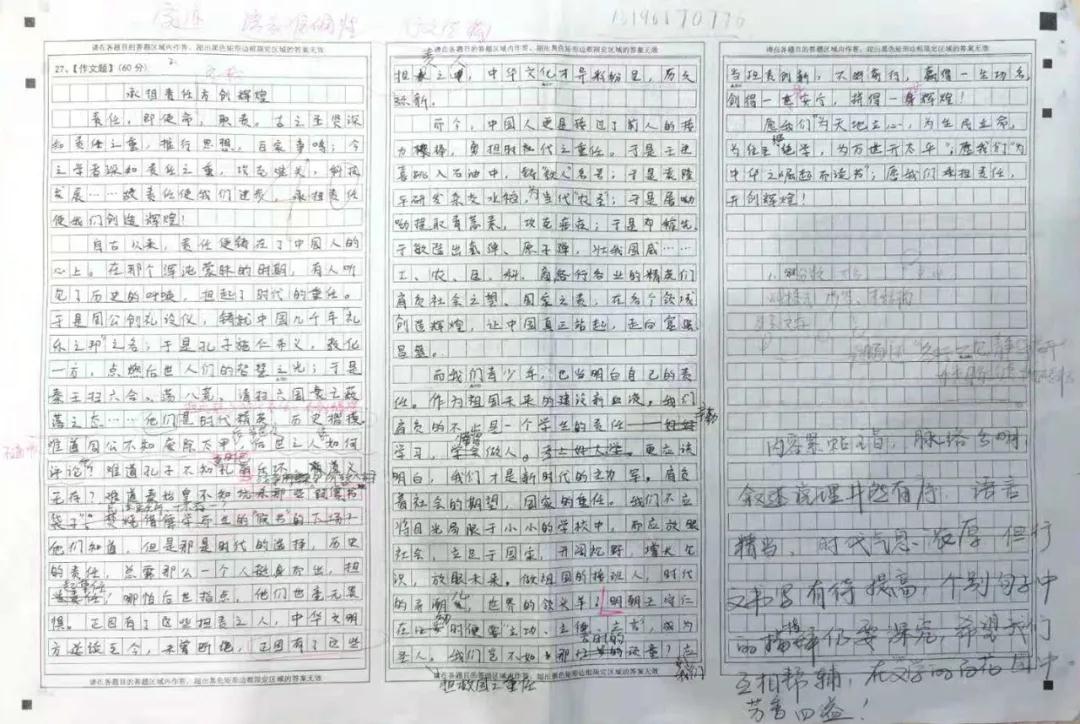 13146170776
请在各题目的答题区域内作答,超出黑色矩形边框限定区域的答案无效
27、【作文题】(60分)
承担责任方创辉煌
责任,即使命,职责。古之圣贤深
知责任之重,推行思想,百家争鸣;今
之学者深知责任之重,攻克难关,科技
发展……故责任使我们进步,承担责任
使我们创造辉煌!
自古以来,责任便铸在了中国人的
心上。在那个浑沌蒙昧的时期,有人听
见了历史的呼唤,担起了时代的重任。
于是周公创礼设仪,铸就中国几千年礼
乐之邦"之名;于是孔子施仁布义,教化
一方,点燃后世人们的智慧之光;于是
秦王扫六合、荡八荒,清扫六国
荡之态……他们是时代精英,历史楷模。
难道周公不知
评论?难道孔子不知礼
无存?难道秦始皇不知
他们知道,但是那是时代的选择,历史
的责任,总需那么一个人挺身而出,担
起重任!哪怕后世指点,他们也毫无畏
惧。正因有了这些担责之人,中华文明
方延续至今,未曾断绝,正因有了这些
请在各题目的答题区域内作答,超出黑色矩形边框限定区域的答案无效
请在各题目的答题区域内作答,超出黑色矩形边框限定区域的答案无效
担责之人,中华文化才异彩纷呈,历久
弥新。
而今,中国人更是接过了前人的接
力棒,勇担时代之重任。于是王进
喜跳入石油中,铸"铁人"名号;于是袁隆
平研发杂交水稻,为当代"农圣";于是屠呦
呦提取青蒿素,攻克疟疾;于是邓稼先
于敏造出氢弹、原子弹,壮我国威……
工、农、医、科,各行各业的精英们
肩负社会之望、国家之责,在各个领域
创造辉煌,让中国真正站起,走向富强
昌盛。
而我们青少年,也当明白自己的责
任。作为祖国未来的建设新血液,我们
肩负的不止是一个学生的责任——
学习,学会做人。更应该
明白,我们才是新时代的主力军。肩负
着社会的期望,国家的重任。我们不应
将目光局限于小小的学校中,而应放眼
社会,立足于国家,开阔视野,增长见
识,放眼未来。做祖国的接班人,时代
的弄潮儿,世界的领头羊!明朝王守仁
在幼时便要"立功、立德、立言",成为
圣人,我们岂不如那时的孩童?应
担救国之重任
请在各题目的答题区域内作答,超出黑色矩形边框限定区域的答案无效
请在各题目的答题区域内作答,超出黑色矩形边框限定区域的答案无效
当担责创新,不畏前行,赢得一生功名,
创得一世安宁,拼得一身辉煌!
愿我们"为天地立心,为生民立命,
为往圣继绝学,为万世开太平";愿我们"为
中华之崛起而读书";愿我们承担责任,
开创辉煌!
内容紧贴主旨,脉络分明,
叙述说理井然有序,语言
精当,时代气息浓厚,但行
文书写有待提高,个别句子中
的措辞仍要深究,希望我们
互相帮辅,在文字的
芳香四溢!